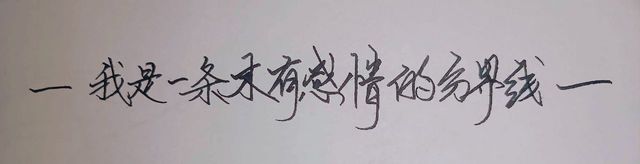 — 我是一条未有感情的分界线 —